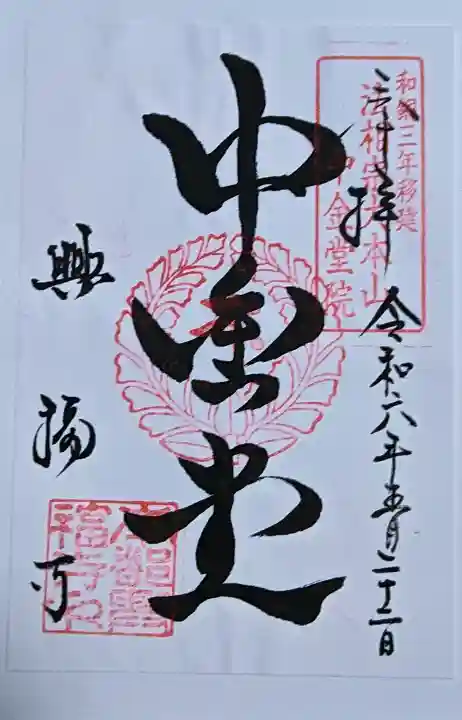 和銅三年移建
法相宗大本山
中金堂院
奉拝
令和六年五月二十二日
中金堂
興福寺